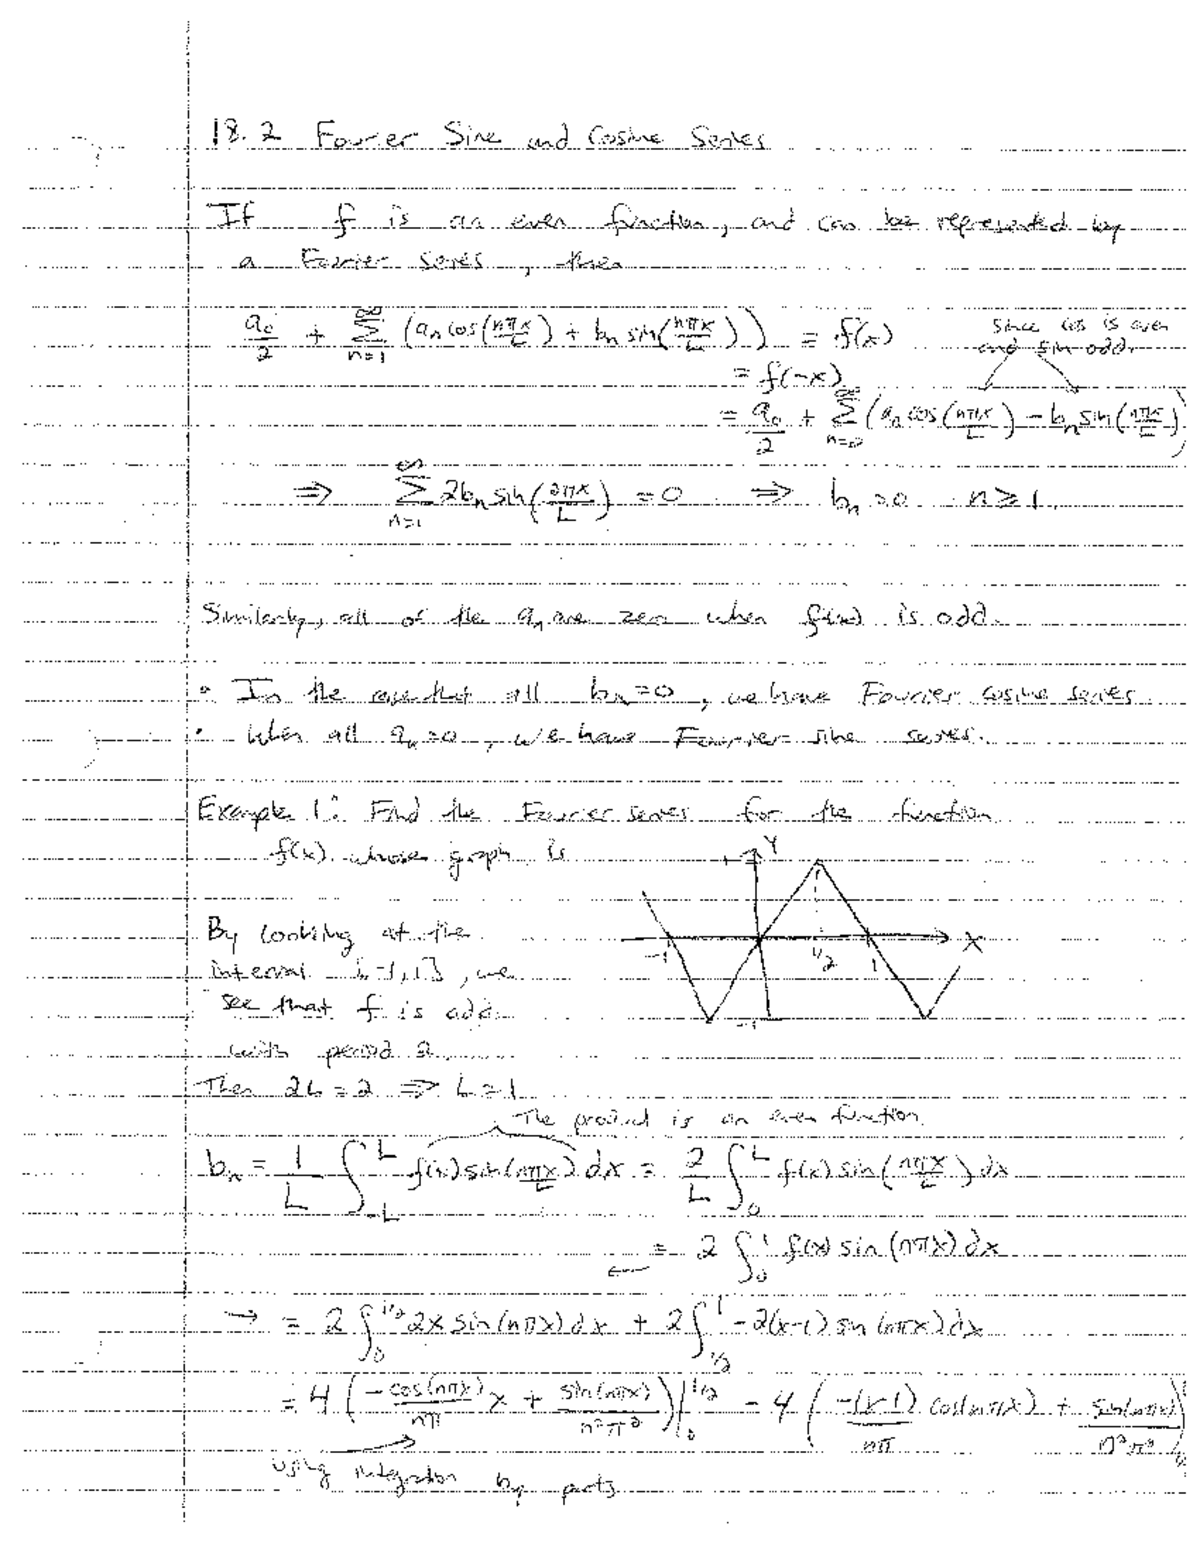 18.2 Fourier Sine and Cosine Series
If f is an even function, and can be represented by
a Fourier series, then
a₀/2 + ∑_{n=1}^{∞} (aₙ cos(nπx/L) + bₙ sin(nπx/L)) = f(x)
since cos is even
and sin odd.
= f(-x)
= a₀/2 + ∑_{n=0}^{∞} (aₙ cos(nπx/L) - bₙ sin(nπx/L))
⇒ ∑_{n=1}^{∞} 2bₙ sin(nπx/L) = 0 ⇒ bₙ = 0 n ≥ 1.
Similarly, all of the aₙ are zero when f(x) is odd.
• In the case that all bₙ = 0, we have Fourier cosine series.
• When all aₙ = 0, we have Fourier sine series.
Example 1: Find the Fourier series for the function
f(x) whose graph is
1 y
By looking at the
x
-1 1/2 1
interval [-1,1], we
see that f is odd
-1
with period 2.
Then 2L = 2 ⇒ L = 1
The product is an even function.
bₙ = 1/L ∫_{-L}^{L} f(x) sin(nπx/L) dx = 2/L ∫_0^L f(x) sin(nπx/L) dx
= 2 ∫_0^1 f(x) sin(nπx) dx
←
→ = 2 ∫_0^{1/2} 2x sin(nπx) dx + 2 ∫_{1/2}^1 -2(x-1) sin(nπx) dx
= 4 (-cos(nπx)/nπ x + sin(nπx)/n²π²)|_0^{1/2} - 4 (-(x-1)/nπ cos(nπx) + sin(nπx)/n²π²)
using integration by parts